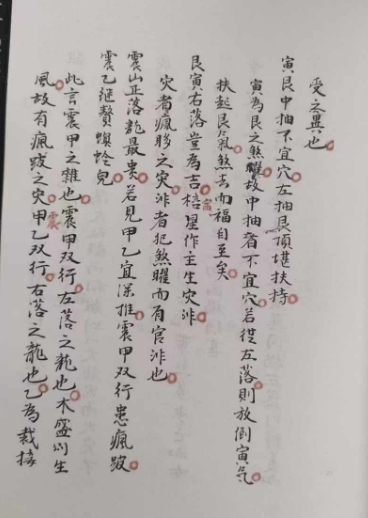 受之異也
寅艮中抽不宜穴左抽艮頂堪扶持
寅為艮之煞曜故中抽者不宜穴若從左落則放倒寅氣
扶起艮氣煞去而福自至矣
艮寅右落豈為吉棓星作主生災非
災者瘋胗之災非者犯煞曜而有官非也
震山正落龍最貴若見甲乙宜深推震甲双行患瘋跛
震乙継贅螟蛉兒
此言震甲之雜也震甲双行左落之龍也木盛則生
風故有瘋跛之災甲乙双行右落之龍也乙為裁接
震